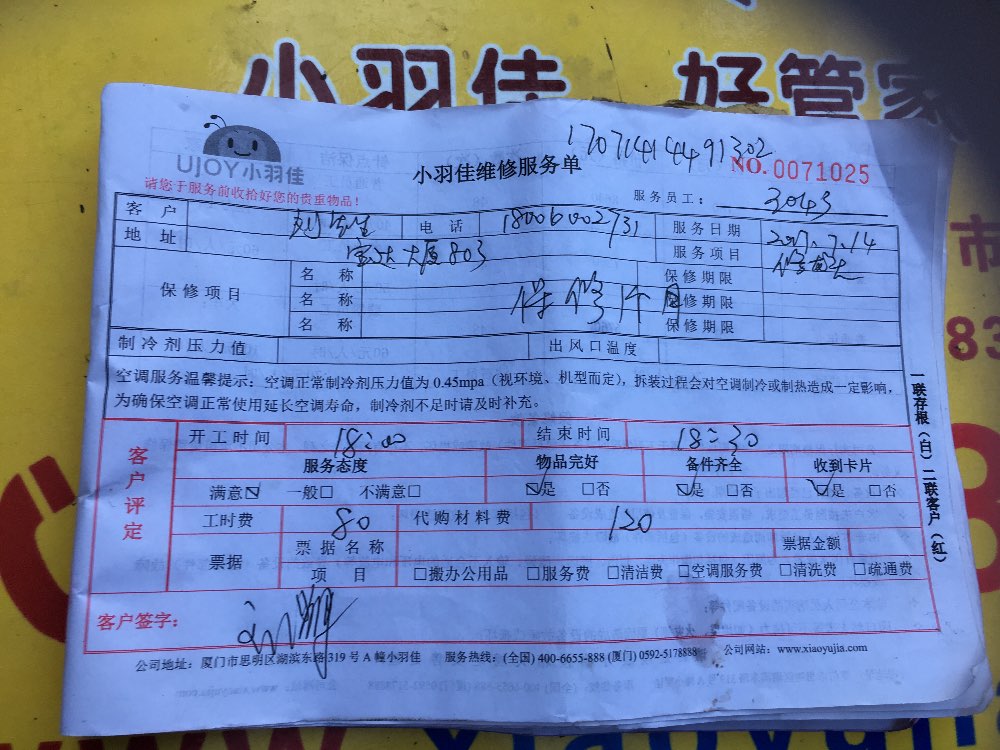 小羽佳 好管家
17071414491302
UJOY小羽佳
小羽佳维修服务单
NO.0071025
请您于服务前收拾好您的贵重物品！
服务员工： 3043
客户 刘先生 电话 18006002731 服务日期 2017.7.14
地址 宝达大厦803 服务项目
保修项目 名称 保修期限
名称 保修个月 保修期限
名称 保修期限
制冷剂压力值 出风口温度
空调服务温馨提示：空调正常制冷剂压力值为 0.45mpa（视环境、机型而定），拆装过程会对空调制冷或制热造成一定影响，
为确保空调正常使用延长空调寿命，制冷剂不足时请及时补充。
一联存根（白）二联客户（红）
客户评定
开工时间 18:00 结束时间 18:30
服务态度 物品完好 备件齐全 收到卡片
满意☑ 一般□ 不满意□ ☑是 □否 ☑是 □否 ☑是 □否
工时费 80 代购材料费 120
票据 票据名称 票据金额
项目 □搬办公用品 □服务费 □清洁费 □空调服务费 □清洗费 □疏通费
客户签字：
公司地址：厦门市思明区湖滨东路 319 号 A 幢小羽佳 服务热线：(全国) 400-6655-888 (厦门) 0592-5178888 公司网站：www.xiaoyujia.com